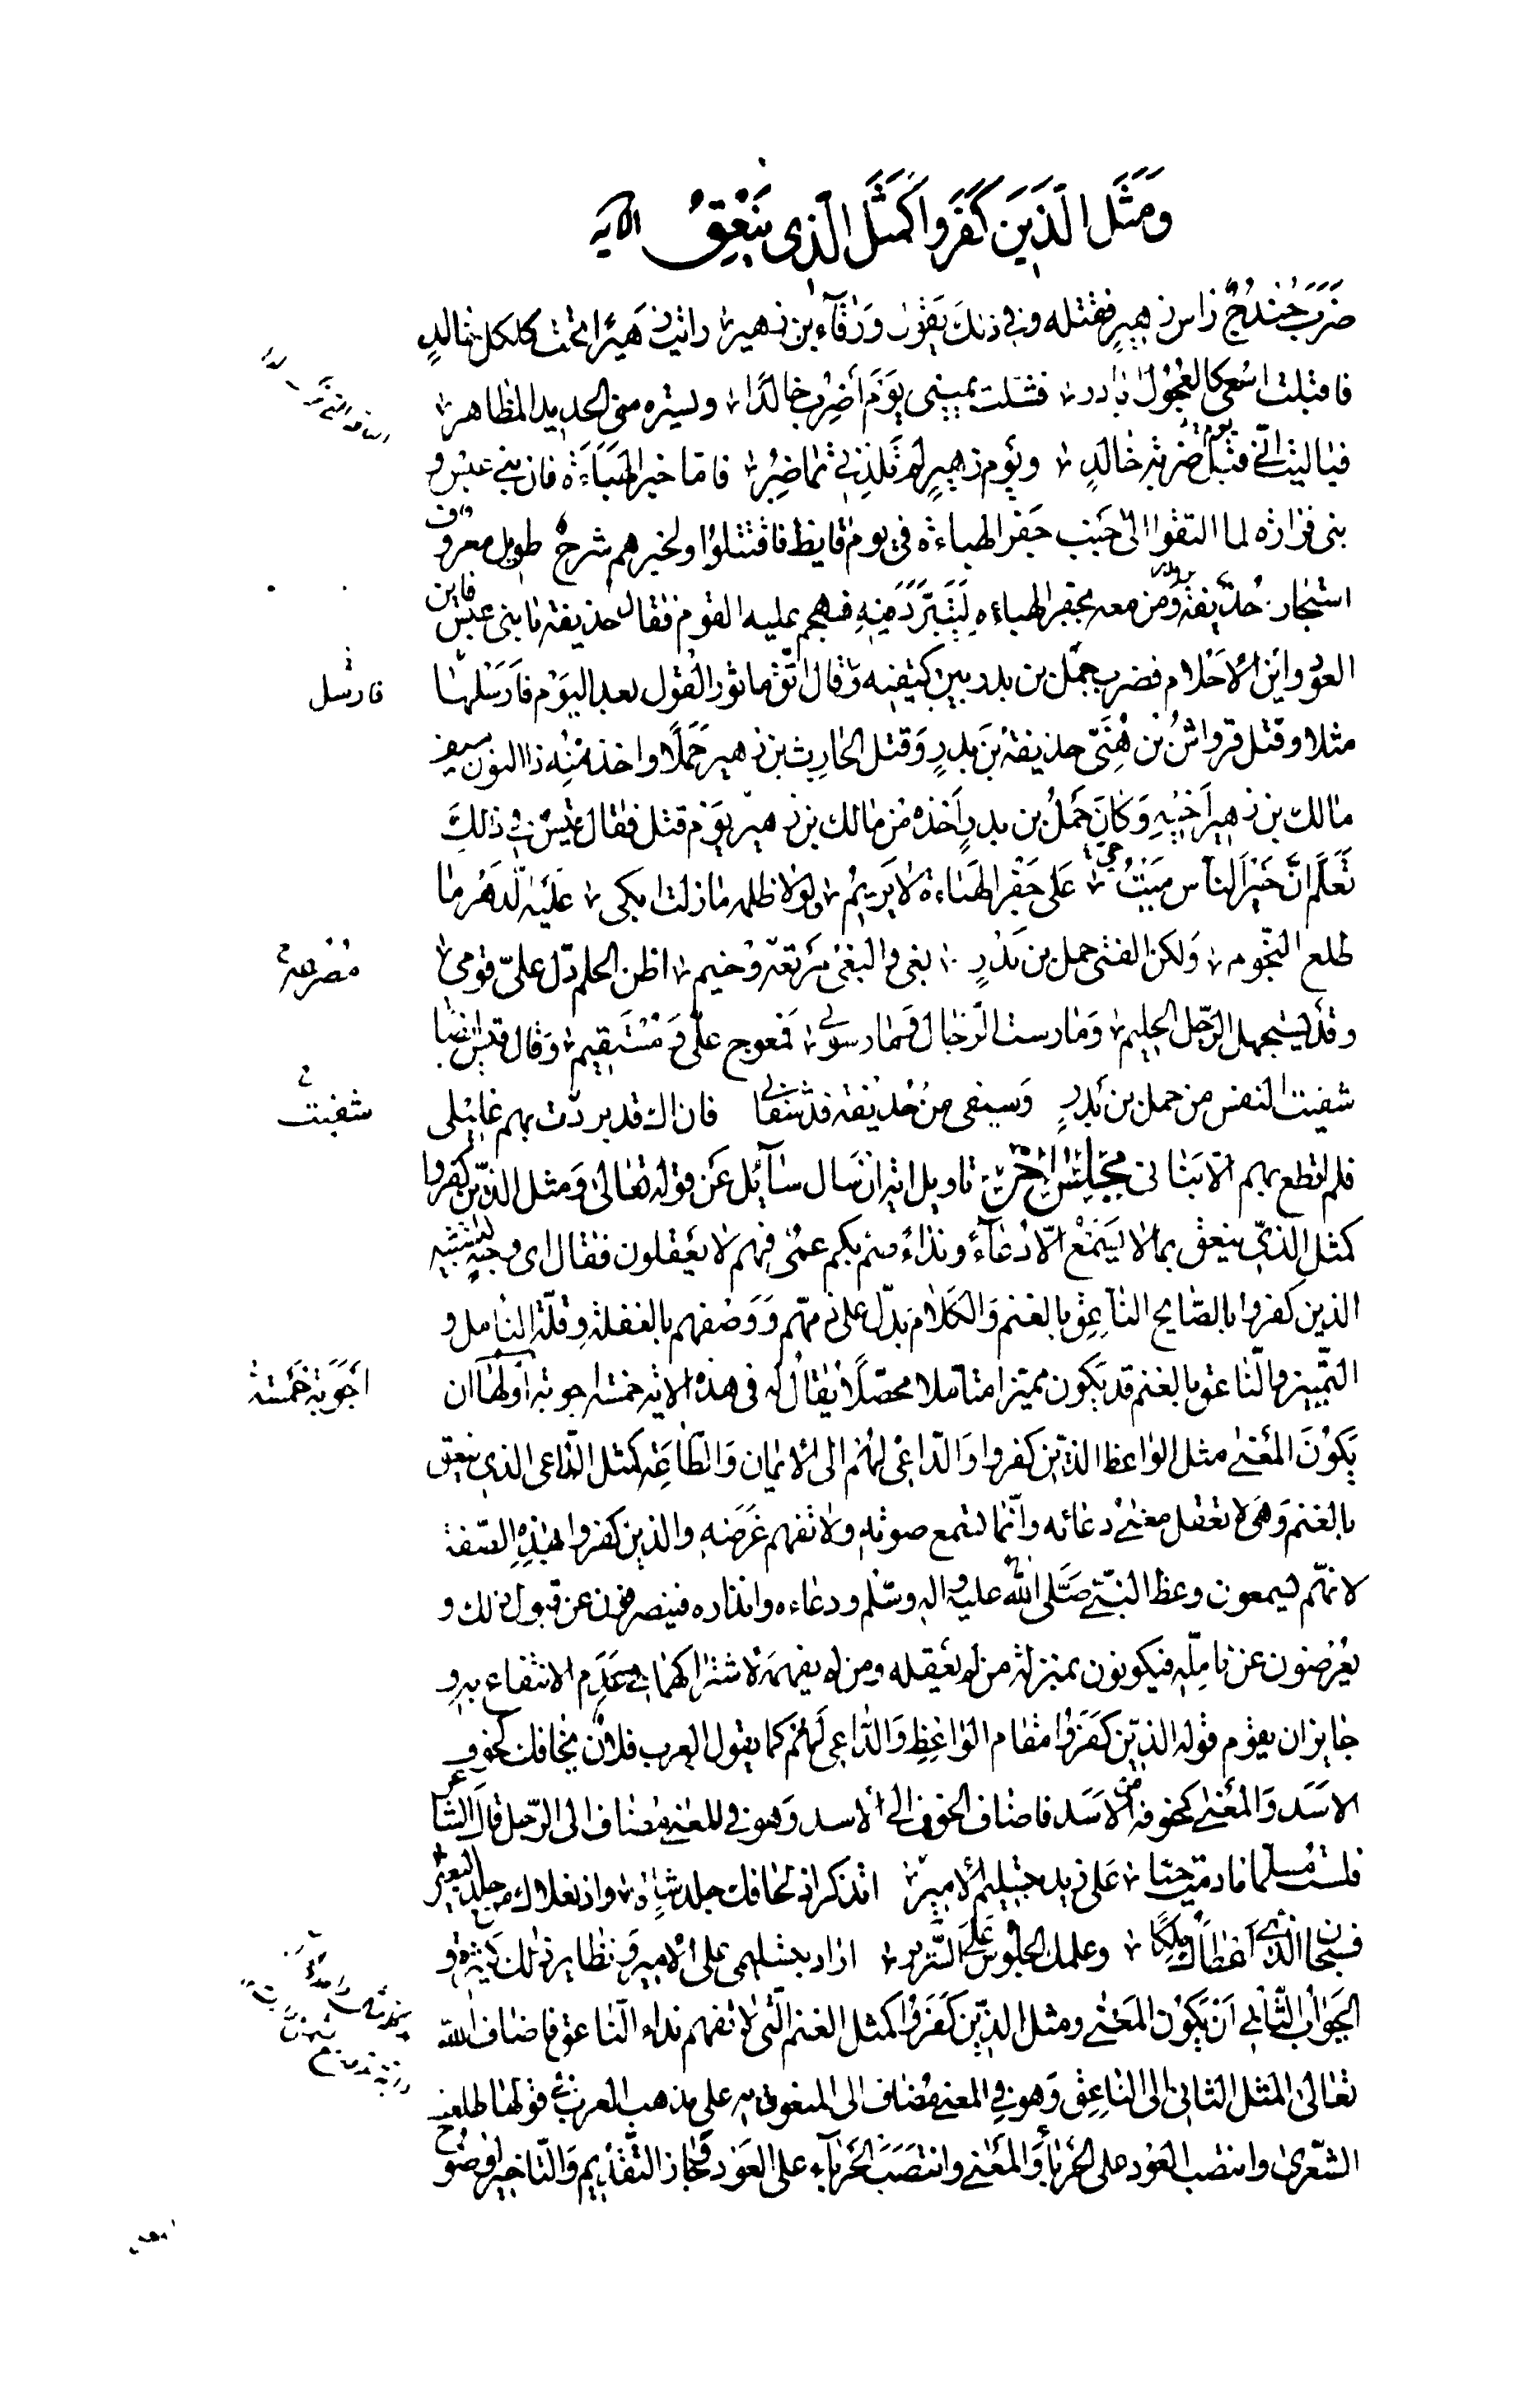 وَمَثَل الَّذِينَ كَفَرُوا كَمَثَلِ الَّذِي يَنْعِقُ الآية
ضَرَبَ جُندُحٌ رأس زهيرٍ فقتله وفي ذلك يقول وَرْقآء بن زهير رايت زهيرًا تحت كلكل خالدٍ
فاقبلت اسعى كالعجول ابادر فشلّت يميني يَوْمَ أَضرِبُ خالدًا ويستره مني الحديد المظاهر
فيا ليت انّي قبل ضربة خالدٍ ويوم زهيرٍ لم تلدني تماضِرُ فامّا خبر الهَبَاءَة فان بني عبس و
بني فزارة لما التقوا الى جَنب جَفْر الهباءة في يوم قايظ فاقتتلوا ولخبرهم شرحٌ طويل معروف
استجار حُذَيفة ومن معه بجفر الهباءه لِيَتَبَرَّدَ مِنهِ فهجم عليه القوم فقال حذيفة يا بني عبس فاين
العود واين الأحلام فضرب حمل بن بدر بين كتفيه وقال اتّق ماثور القول بعد اليوم فَارَسْلها فارسل
مثلا وقتل قرواشُ بن هُنَيّ حذيفة بنَ بدرٍ وَقتل الحارِث بن زهير حَمَلًا واخذ مِنْه ذا النون سيف
مالك بن زهير اَخِيهِ وَكانَ حَمَلُ بن بدرٍ اَخذه من مالك بن زهير يوم قتل فقال قيس في ذلك
تَعَلَّم انَّ خَيرَ الناس مَيتٌ عَلى جَفْر الهَباءة لا يَريمُ ولولا ظلمه ما زلت ابكى عَلَيه الدهرَ ما
طلع النّجوم وَلكن الفتى حمل بن بَدْرٍ بغى والبَغْيُ مَرتعه وَخيم اظن الحلم دَلّ علىّ قومى
وقد يُستجهل الرّجل الحليم وَمارست الرّجال ومارسونى فمعوج علىّ وَمُسْتَقِيم وَقال قيس ايضا
شفيت النفس من حمل بن بَدرٍ وَسيفى مِنْ حُذيفة قد شفانى فان اك قد بردت بهم غليلى شفيت
فلم اقطع بهم الّا بَنانى مَجْلِسٌ اخَر تاويل اية ان سَال سآئل عَن قوله تعالى وَمثل الذّين كفروا
كمثل الّذي ينعق بما لا يَسْمَع الّا دُعآءً ونداءً صم بكم عمى فهم لا يَعقلون فقال اى وجهٍ لتشبيه
الذين كفروا بالصّايح النّاعِق بالغنم وَالكلام يدُلّ على ذمّهم وَوَصْفهم بالغفلة وقلّة التأمل و
التّمييز والنّاعق بالغنم قد يَكون مميّزا متأملا محصّلًا يُقالُ له في هذه الاية خمسة اجوبة اَوّلهَا ان اَجوبَة خَمْسَة
يَكوُنَ المَعْنى مثل الواعظ الذّين كفروا وَالدّاعِى لهُم الى الأيمان وَالطّاعَة كمثل الرّاعى الذي ينعق
بالغنم وَهى لا تعقل معنى دعائه وانّما تسمع صوته ولا تفهم غَرَضه والذين كفروا بهذه الصّفة
لانّهم يسمعون وعظ النبيّ صَلّى الله عليه واله وسلّم ودعاءه وانذاره فينصرفون عن قبول ذلك و
يعْرضون عن تامّله فيكونون بمنزلة من لم يَعقله ومن لم يفهمه لاشتراكهما في عَدَم الانتفاع به و
جايز ان يقوم قوله الذّين كَفَرُوا مقام الواعِظِ وَالدّاعِى لَهُم كما يقول العرب فلان يخافك خوف
الاسَد وَالمَعْنى كخوفه من الاسَد فاضاف الخوف الى الأسد وَهو في المعنى مضاف الى الرّجل قالَ الشّاعر
فلست مُسلّما ما دمتُ حيّا عَلى زيد بتسليم الأمير اتذكر اذ لحافك جلد شاةٍ واذ نعلاك من جلد البَعير
فسبحان الّذي اعْطاكَ مُلكًا وعلمك الجلوس عَلى السَّرير اراد بتسليمى على الأمير ونظاير ذلك كثيرة و
الجَوابُ الثّاني اَنْ يَكوُنَ المَعْنى ومثل الذّين كَفَرُوا كمثل الغنم الّتى لا تفهم نداء النّاعق فاضاف الله
تعالى المثل الثانى الى النّاعِق وَهو في المعنى مُضاف الى المنعوق به على مذهب العرب في قولها طلعت
الشّعرى وانتصب العُود على الحَرباء وَالمَعْنى وانتَصَبَ الحَرباء على العود وَجاز التّقديم وَالتّاخير لوضوح